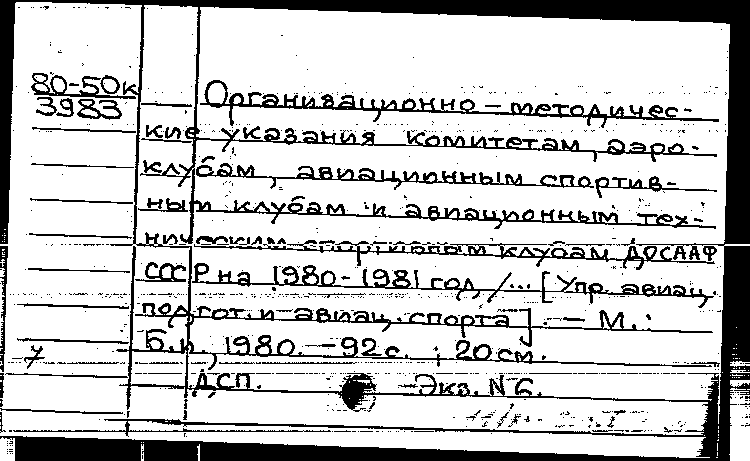 80-50к
3983
Организационно-методичес-
кие указания комитетам, аэро-
клубам, авиационным спортив-
ным клубам и авиационным тех-
ническим спортивным клубам ДОСААФ
СССР на 1980-1981 год /... [Упр. авиац.
подгот. и авиац. спорта]. — М.:
Б.и., 1980. — 92 с. ; 20 см.
ДСП. — Экз. N 6.